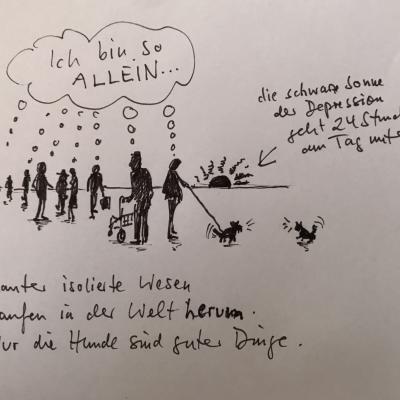 Ich bin so
ALLEIN...
die schwarze Sonne
der Depression
geht 24 Stund
am Tag unte
auter isolierte Wesen
aufen in der Welt herum.
ur die Hunde sind guter Dinge.